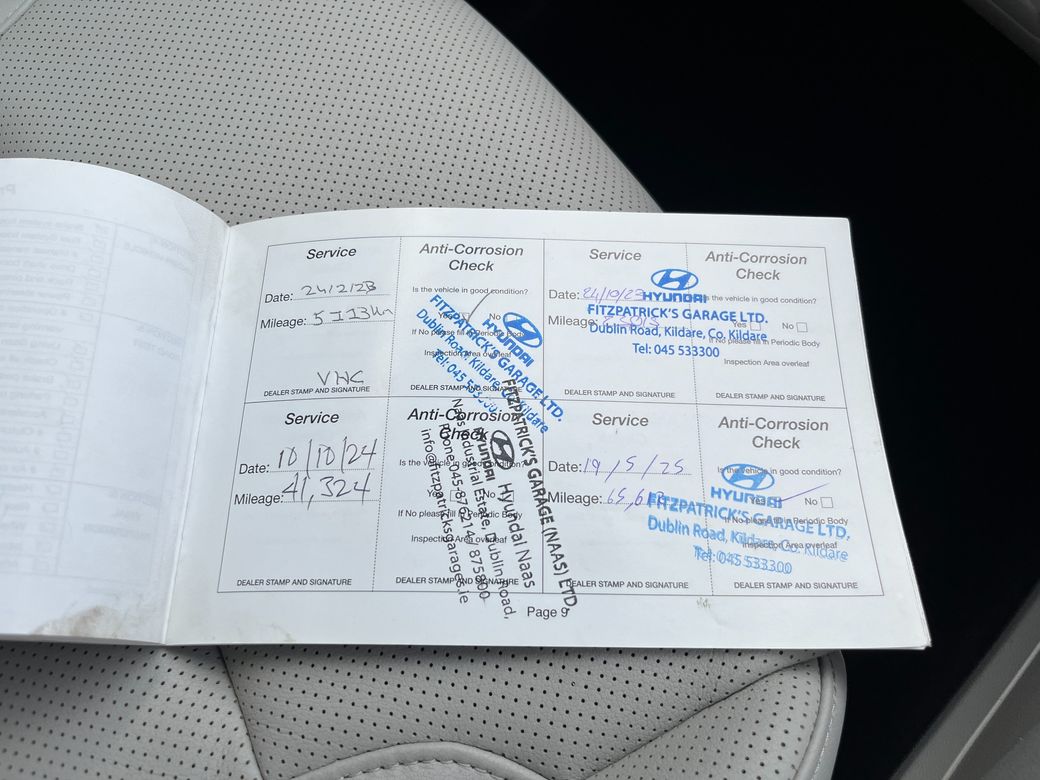 Service
Date: 24/2/23
Mileage:
VHC
DEALER STAMP AND SIGNATURE
Anti-Corrosion
Check
Is the vehicle in good condition?
Yes
If No please fill in Periodic Body
Inspection Area overleaf
DEALER STAMP AND SIGNATURE
HYUNDAI
FITZPATRICK'S GARAGE LTD.
Dublin Road, Kildare, Co. Kildare
Tel: 045 533300
Service
Date: 24/10/23
Mileage:
DEALER STAMP AND SIGNATURE
Anti-Corrosion
Check
Is the vehicle in good condition?
Yes No
If No please fill in Periodic Body
Inspection Area overleaf
DEALER STAMP AND SIGNATURE
HYUNDAI
FITZPATRICK'S GARAGE LTD.
Dublin Road, Kildare, Co. Kildare
Tel: 045 533300
Service
Date: 10/10/24
Mileage: 41,324
DEALER STAMP AND SIGNATURE
Anti-Corrosion
Check
Is the vehicle in good condition?
Yes No
If No please fill in Periodic Body
Inspection Area overleaf
DEALER STAMP AND SIGNATURE
FITZPATRICK'S GARAGE (NAAS) LTD.
HYUNDAI Hyundai Naas
Naas Industrial Estate, Dublin Road,
info@fitzpatricksgarages.ie
Service
Date: 19/5/25
Mileage:
DEALER STAMP AND SIGNATURE
Anti-Corrosion
Check
Is the vehicle in good condition?
Yes No
If No please fill in Periodic Body
Inspection Area overleaf
DEALER STAMP AND SIGNATURE
HYUNDAI
FITZPATRICK'S GARAGE LTD.
Dublin Road, Kildare, Co. Kildare
Tel: 045 533300
Page 9